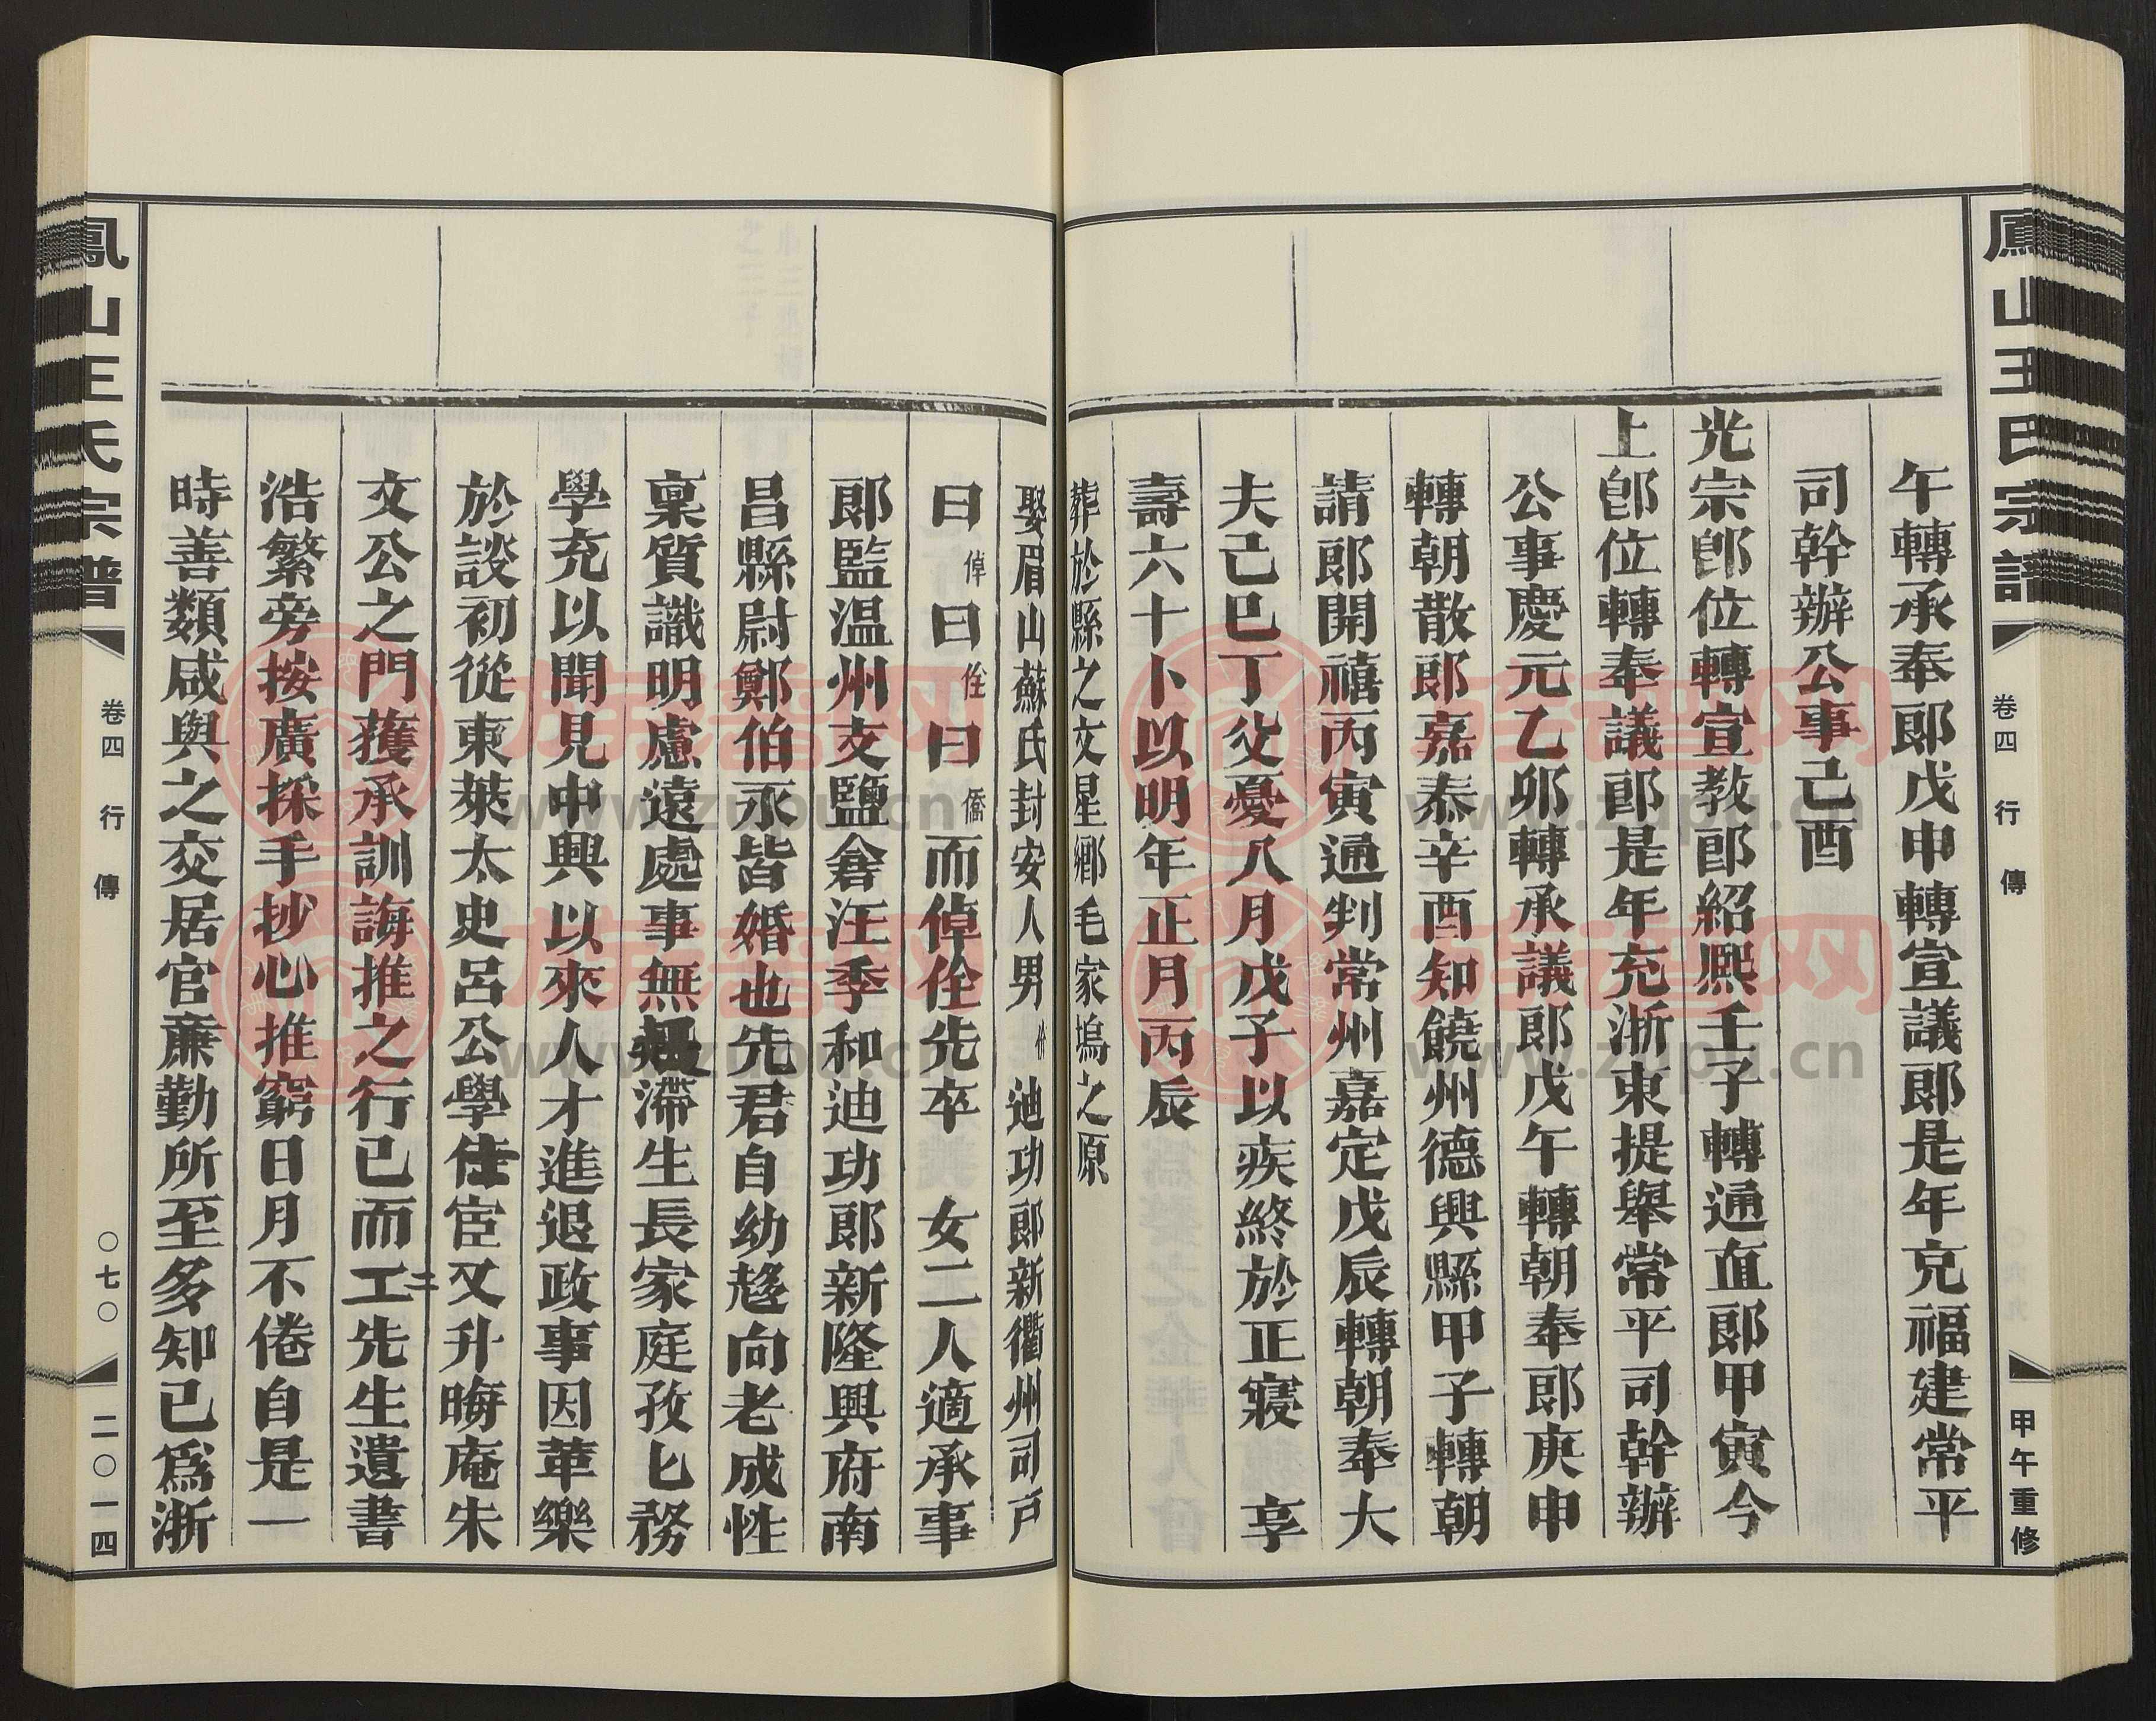 鳳山王氏宗譜
卷四 行傳
甲午重修
午轉承奉郎戊申轉宣議郎是年充福建常平
司幹辦公事己酉
光宗即位轉宣教郎紹熙壬子轉通直郎甲寅今
上即位轉奉議郎是年充浙東提舉常平司幹辦
公事慶元乙卯轉承議郎戊午轉朝奉郎庚申
轉朝散郎嘉泰辛酉知饒州德興縣甲子轉朝
請郎開禧丙寅通判常州嘉定戊辰轉朝奉大
夫己巳丁父憂八月戊子以疾終於正寢 享
壽六十卜以明年正月丙辰
葬於縣之文星鄉毛家塢之原
娶眉山蘇氏封安人男 迪功郎新衢州司戶
曰倬曰佺曰僑而倬佺先卒 女二人適承事
郎監温州支鹽倉汪季和迪功郎新隆興府南
昌縣尉鄭伯永皆婚也先君自幼趍向老成性
稟質識明慮遠處事無 滯生長家庭孜匕務
學充以聞見中興以來人才進退政事因革樂
於談初從東萊太史呂公學 宦又升晦庵朱
文公之門獲承訓誨推之行已而二工先生遺書
浩繁旁按廣採手抄心推窮日月不倦自是一
時善類咸與之交居官廉勤所至多知已為浙
鳳山王氏宗譜
卷四 行傳
〇七〇
二〇一四
族譜网
www.zupu.cn
族譜网
www.zupu.cn
族譜网
www.zupu.cn
族譜网
www.zupu.cn